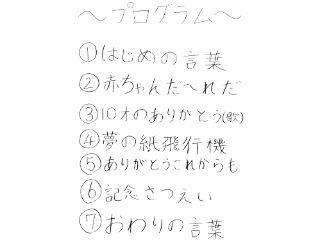 ～プログラム～
①はじめの言葉
②赤ちゃんだ～れだ
③10才のありがとう(歌)
④夢の紙飛行機
⑤ありがとうこれからも
⑥記念さつえい
⑦おわりの言葉